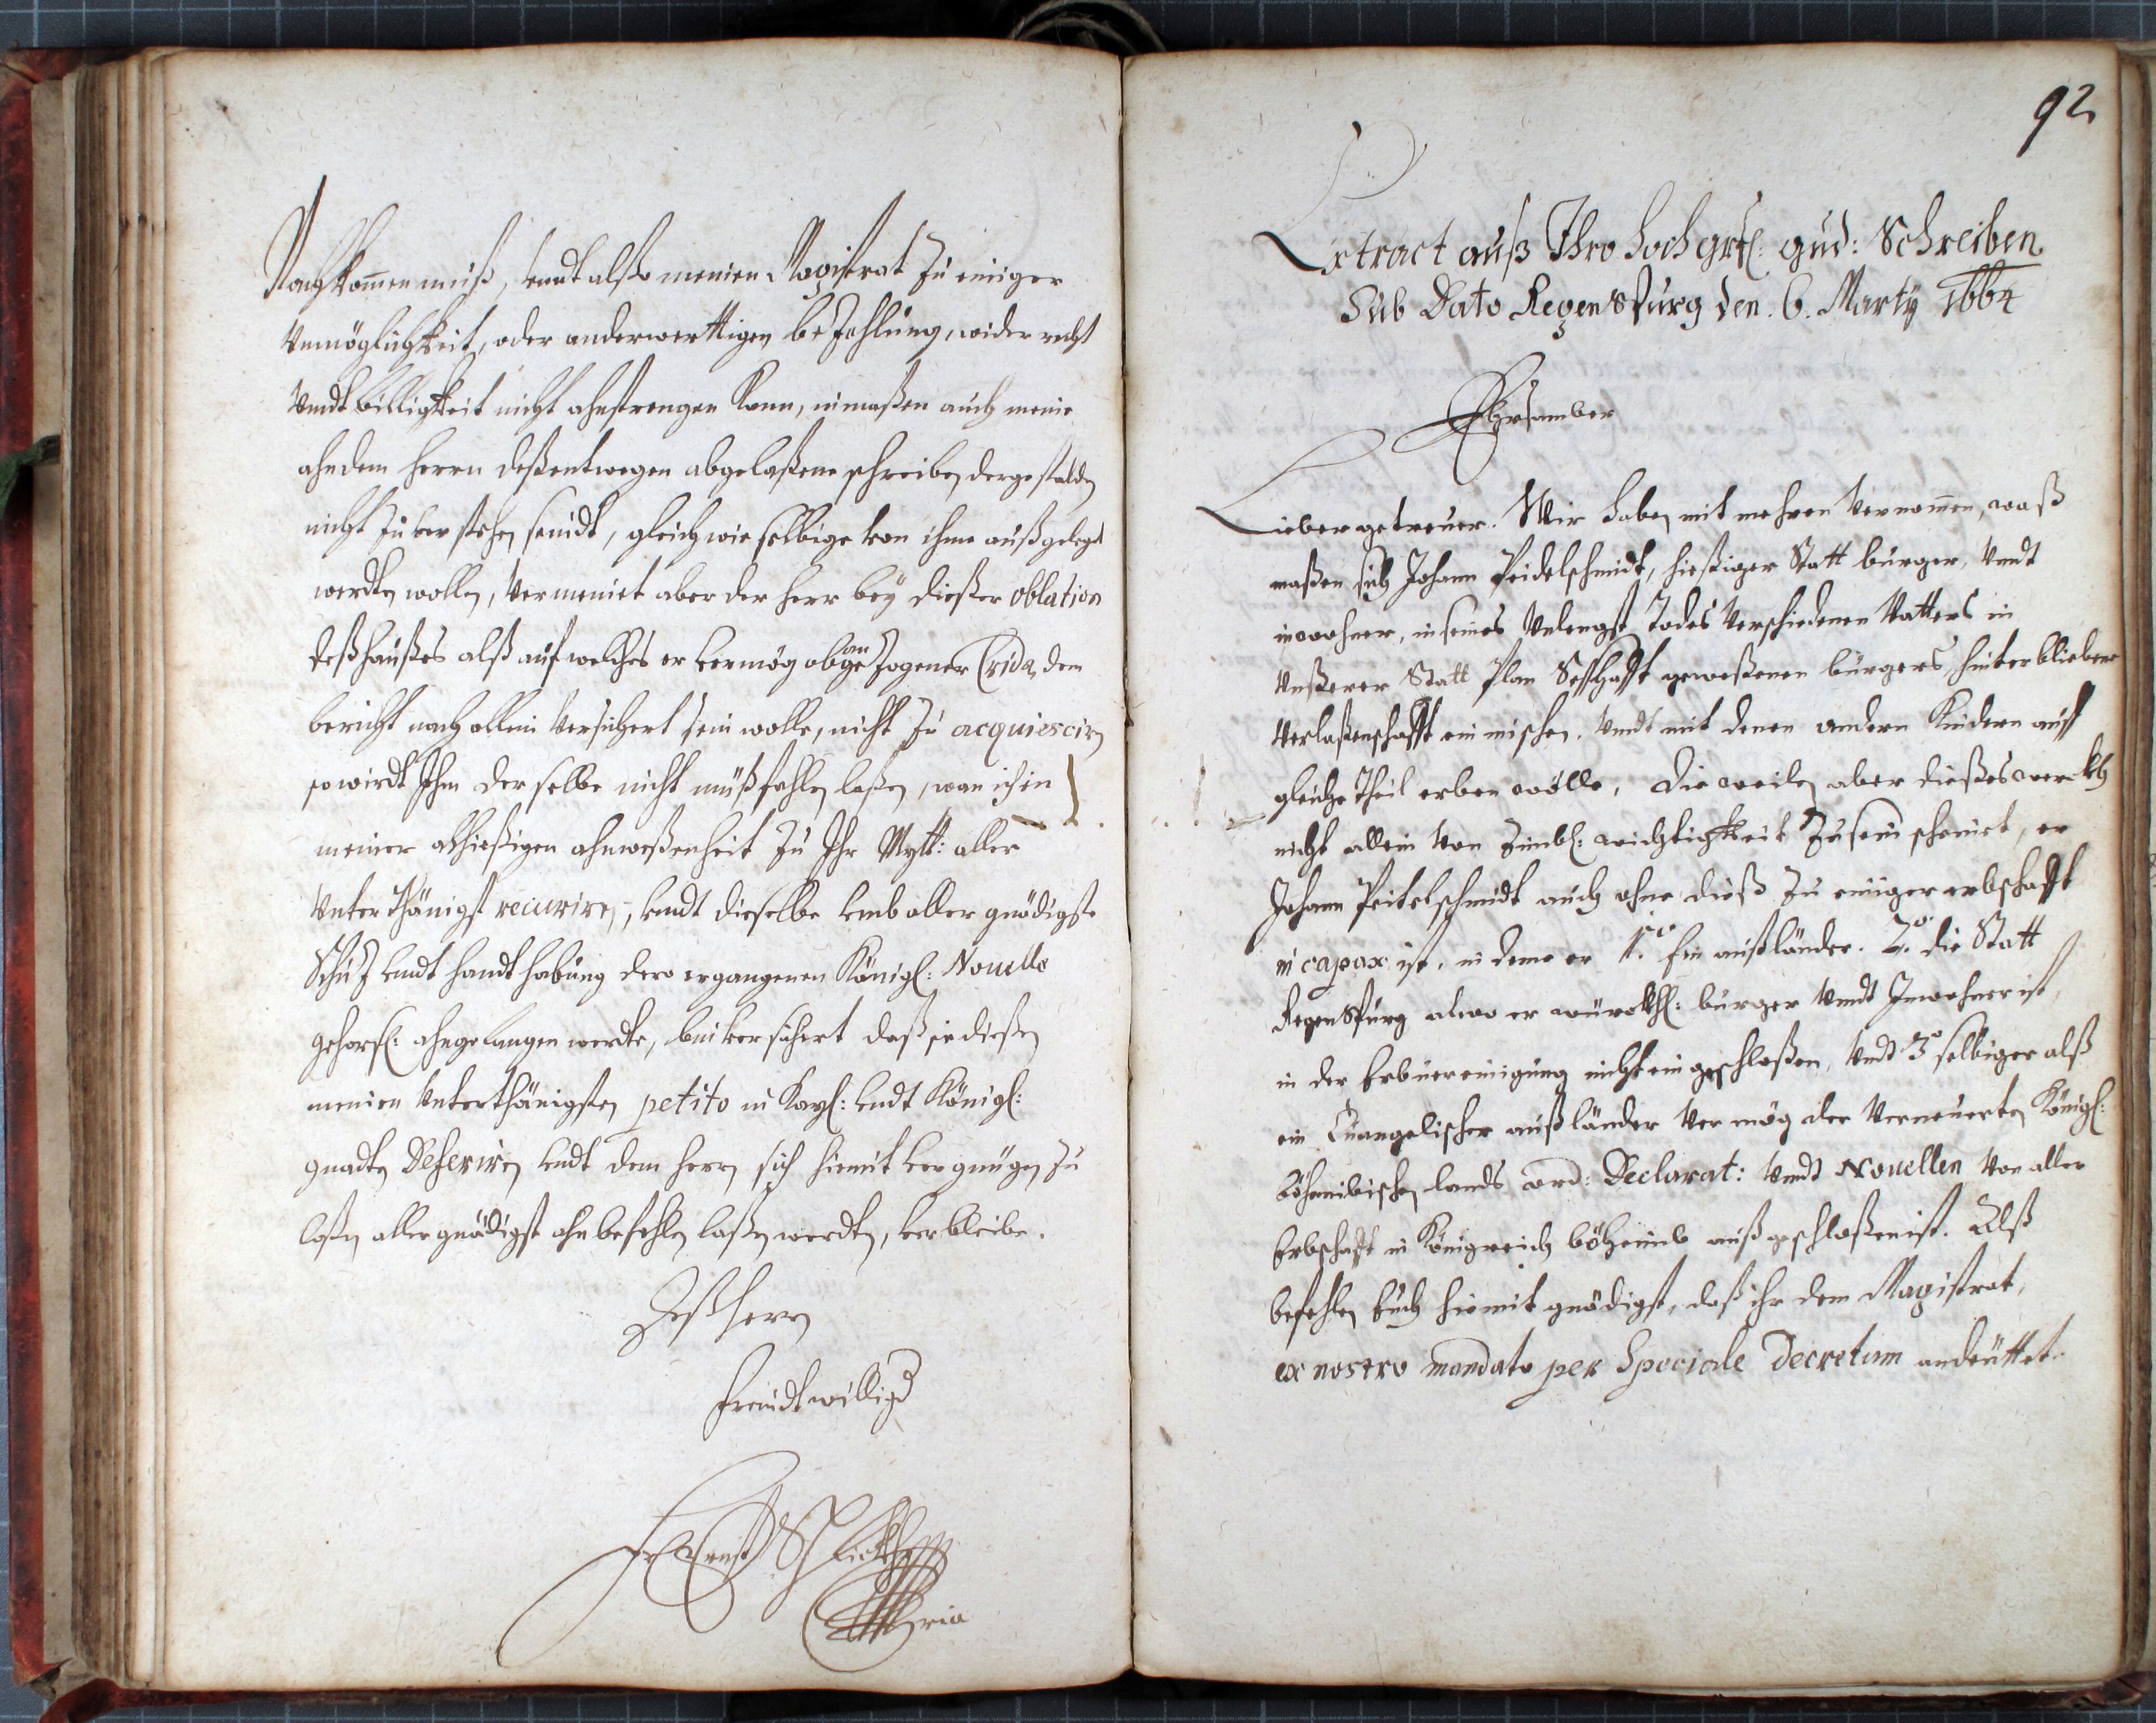 Nachkom̃en muß, vndt alßo meinen Magistrat zu einiger
Vnmöglichkeit, oder anderwerttigen bezahlung, wider recht
Vndt billigkeit nicht ahnstrengen kann, inmaßen auch meine
ahn dem herrn deßentwegen abgelaßene schreiben dergestalden
nicht zu verstehen seindt, gleich wie selbige von ihme außgelegt
werdten wollen, Vermeinet aber der herr bey dießer oblation
deß haußes alß auf welches er vermög ob angezogener Crida, dem
bericht nach allein Versichert sein wolle, nicht zu acquiesciren
so wirdt Ihm derselbe nicht mißfahlen laßen, wan ich in
meiner alhießigen ahnweßenheit zu Ihr Mytt: aller
Vnterthänigst recurire, vndt dieselbe vmb aller gnädigste
Schuz vndt handthabung dero ergangenen Königl: Nouelle
gehorsl: ahngelangen werdte, bin versichert daß sie dießen
meinen Vnterthänigsten petito in Kayl: vndt Königl:
gnadten Deferiren vndt dem herrn sich hiemit vergnügen zu
laßen allergnädigst ahnbefehlen laßen werdten, verbleibe.
Deß herrn
freindtwilligs
Fr Ernst Schlickh
92
Extract auß Ihro hochgrfl: gnd: Schreiben
Sub Dato Regenspurg den. 6. Marty 1664
Ehrsamber
Lieber getreuer. Wir haben mit mehren Vernom̃en, waß
maßen sich Johann Peidelschmidt, hießiger Statt burger, Vndt
inwohner, in seines Vnlengst Todes Verschiedenen Vatters in
Vnßerer Statt Plan Seßhafft geweßenen bürgers hinterbliebene
Verlaßenschafft ein mischen, Vndt mit denen andern Kindern auff
gleiche Theil erben wölle, Die weilen aber dießes werckh
nicht allein Von Zimbl: wichtigkeit zu sein scheinet, er
Johann Peitelschmidt auch ohne dieß zu einiger erbschafft
in capax ist, in deme er 1.mo Ein außländer. 2.do die Statt
Regenspurg alwo er würckhl: burger Vndt Inwohner ist,
in der Erbuereinigung nicht ein geschloßen, Vndt 3o selbiger alß
ein Euangelischer außländer Vermög der Verneuerten Königl:
böhmibischen lands ord: Declarat: Vndt Nouellen Von aller
Erbschafft in Königreich böheimb auß geschloßen ist. Alß
befehlen Euch hiemit gnädigst, daß ihr dem Magistrat,
ex nostro mandato per Speciale Decretum andeuttet.